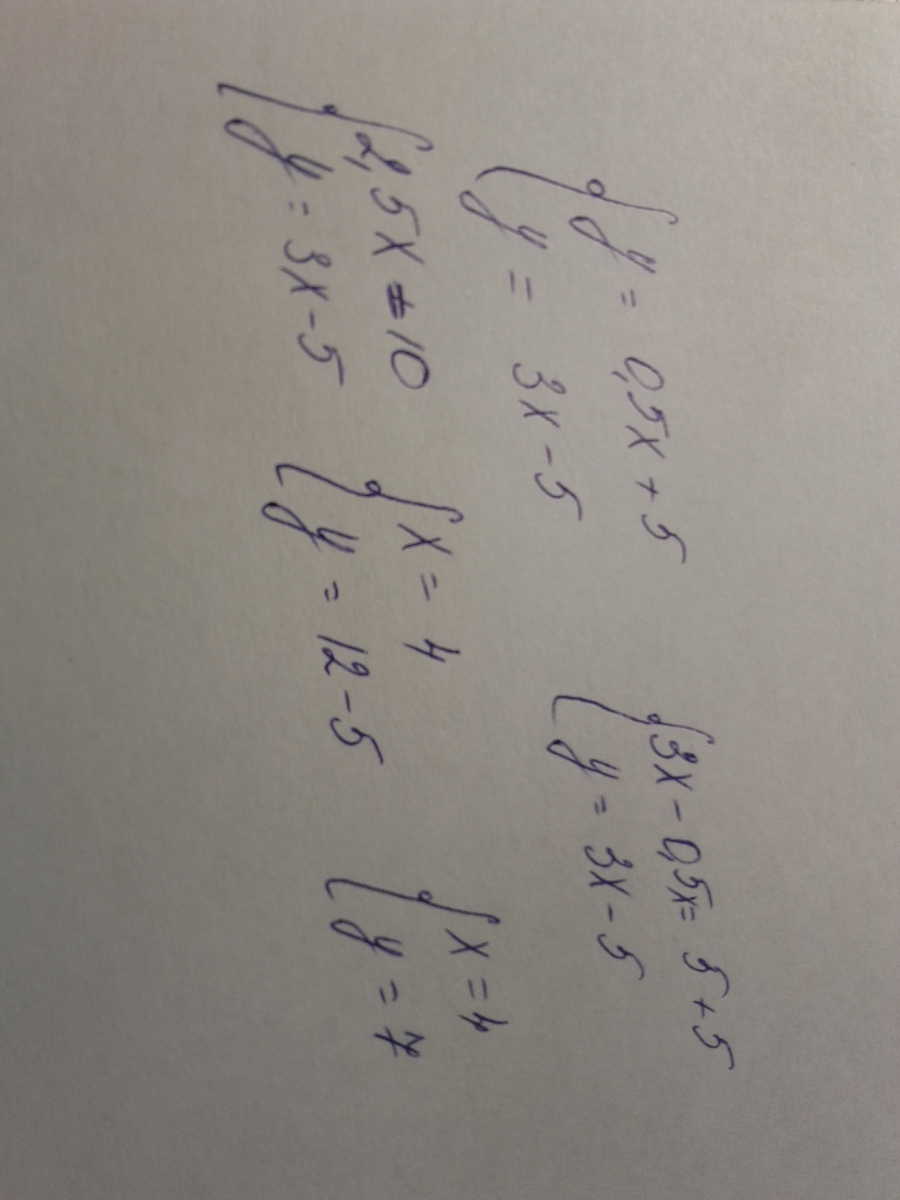 { y = 0,5x + 5
y = 3x - 5
{ 3x - 0,5x = 5 + 5
y = 3x - 5
{ 2,5x = 10
y = 3x - 5
{ x = 4
y = 12 - 5
{ x = 4
y = 7